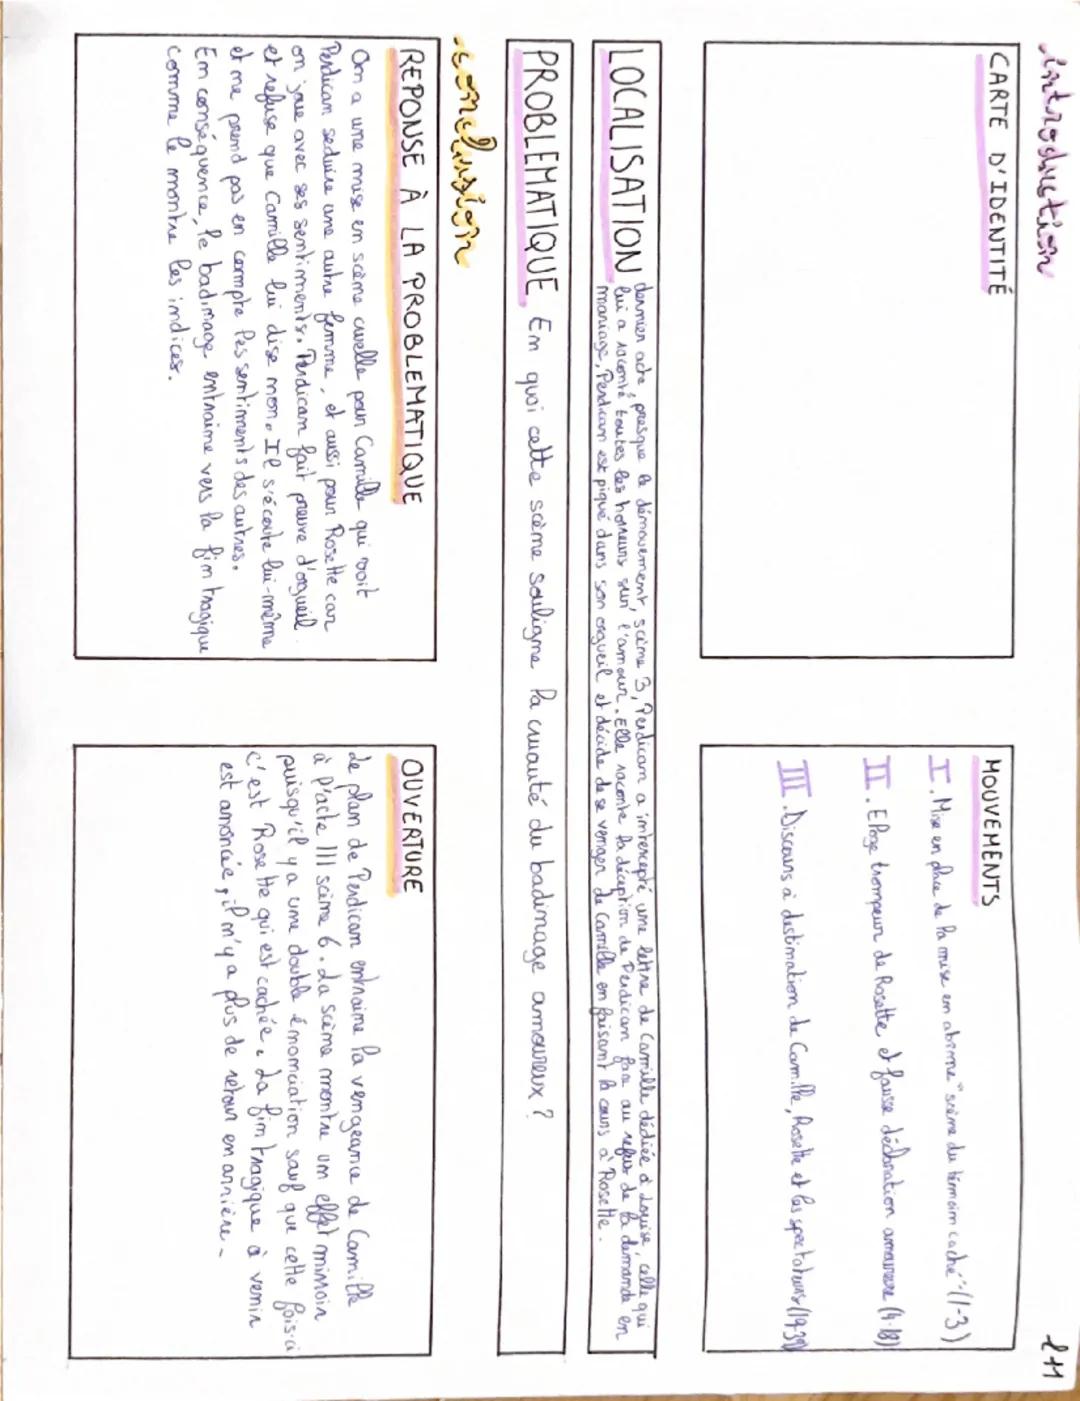 introduction
l11
CARTE D'IDENTITÉ
MOUVEMENTS
I. Mise en place de la mise en abîme "scène du témoin caché": (1-3)
II. Eloge trompeur de Rosette et fausse déclaration amoureuse (4-18)
III. Discours à destination de Camille, Rosette et les spectateurs (19-39)
LOCALISATION dernier acte, presque le dénouement, scène 3, Perdican a intercepté une lettre de Camille dédiée à Louise, celle qui
lui a raconté toutes les horreurs sur l'amour. Elle raconte la déception de Perdican face au refus de la demande en
mariage, Perdican est piqué dans son orgueil et décide de se venger de Camille en faisant la cours à Rosette.
PROBLEMATIQUE En quoi cette scène souligne la cruauté du badinage amoureux ?
conclusion
REPONSE À LA PROBLEMATIQUE
On a une mise en scène cruelle pour Camille qui voit
Perdican séduire une autre femme, et aussi pour Rosette car
on joue avec ses sentiments. Perdican fait preuve d'orgueil
et refuse que Camille lui dise non. Il s'écoute lui-même
et ne prend pas en compte les sentiments des autres.
En conséquence, le badinage entraine vers la fin tragique
comme le montre les indices.
OUVERTURE
Le plan de Perdican entraine la vengeance de Camille
à l'acte III scène 6. La scène montre un effet miroir
puisqu'il y a une double énonciation sauf que cette fois-ci
c'est Rosette qui est cachée. La fin tragique à venir
est annoncée, il n'y a plus de retour en arrière-